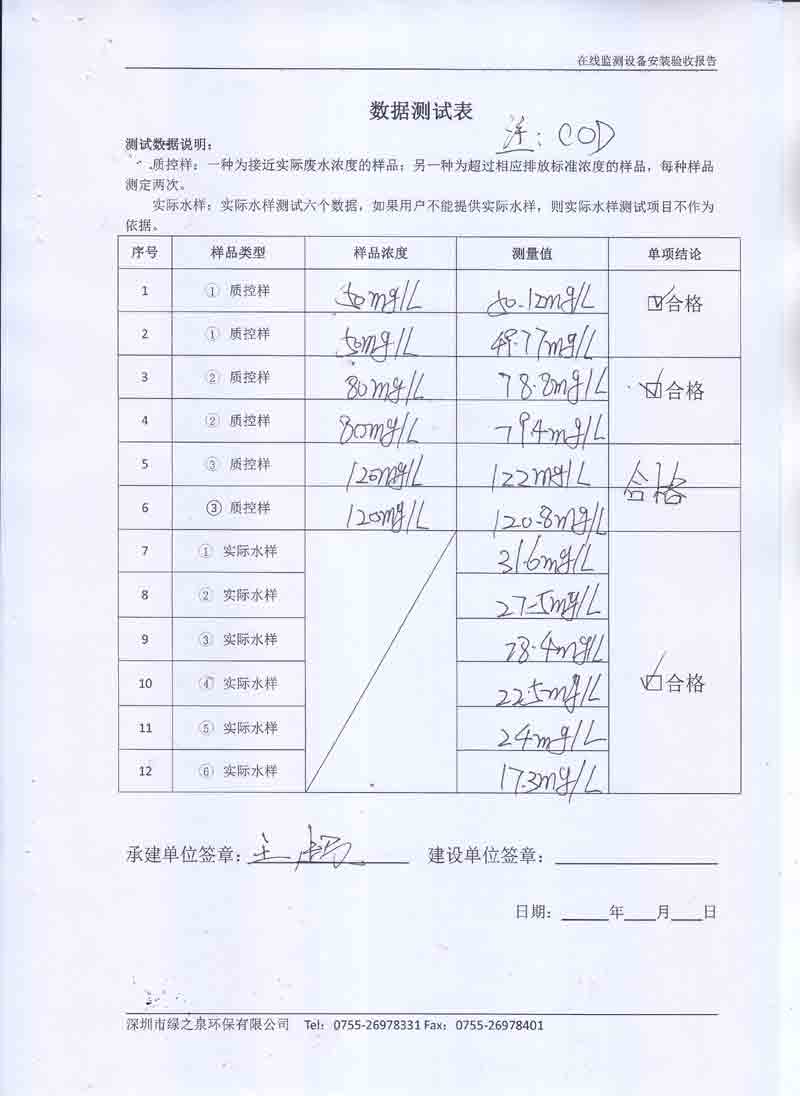 在线监测设备安装验收报告
数据测试表
注：COD
测试数据说明：
质控样：一种为接近实际废水浓度的样品；另一种为超过相应排放标准浓度的样品，每种样品
测定两次。
实际水样：实际水样测试六个数据，如果用户不能提供实际水样，则实际水样测试项目不作为
依据。
序号 样品类型 样品浓度 测量值 单项结论
1 ① 质控样 50mg/L 50.12mg/L ☑合格
2 ① 质控样 50mg/L 49.77mg/L
3 ② 质控样 80mg/L 78.8mg/L ☑合格
4 ② 质控样 80mg/L 79.4mg/L
5 ③ 质控样 120mg/L 122mg/L 合格
6 ③ 质控样 120mg/L 120.8mg/L
7 ① 实际水样 31.6mg/L
8 ② 实际水样 27.5mg/L
9 ③ 实际水样 28.4mg/L
10 ④ 实际水样 22.5mg/L ☑合格
11 ⑤ 实际水样 24mg/L
12 ⑥ 实际水样 17.3mg/L
承建单位签章： 建设单位签章：
日期： 年 月 日
深圳市绿之泉环保有限公司 Tel：0755-26978331 Fax：0755-26978401